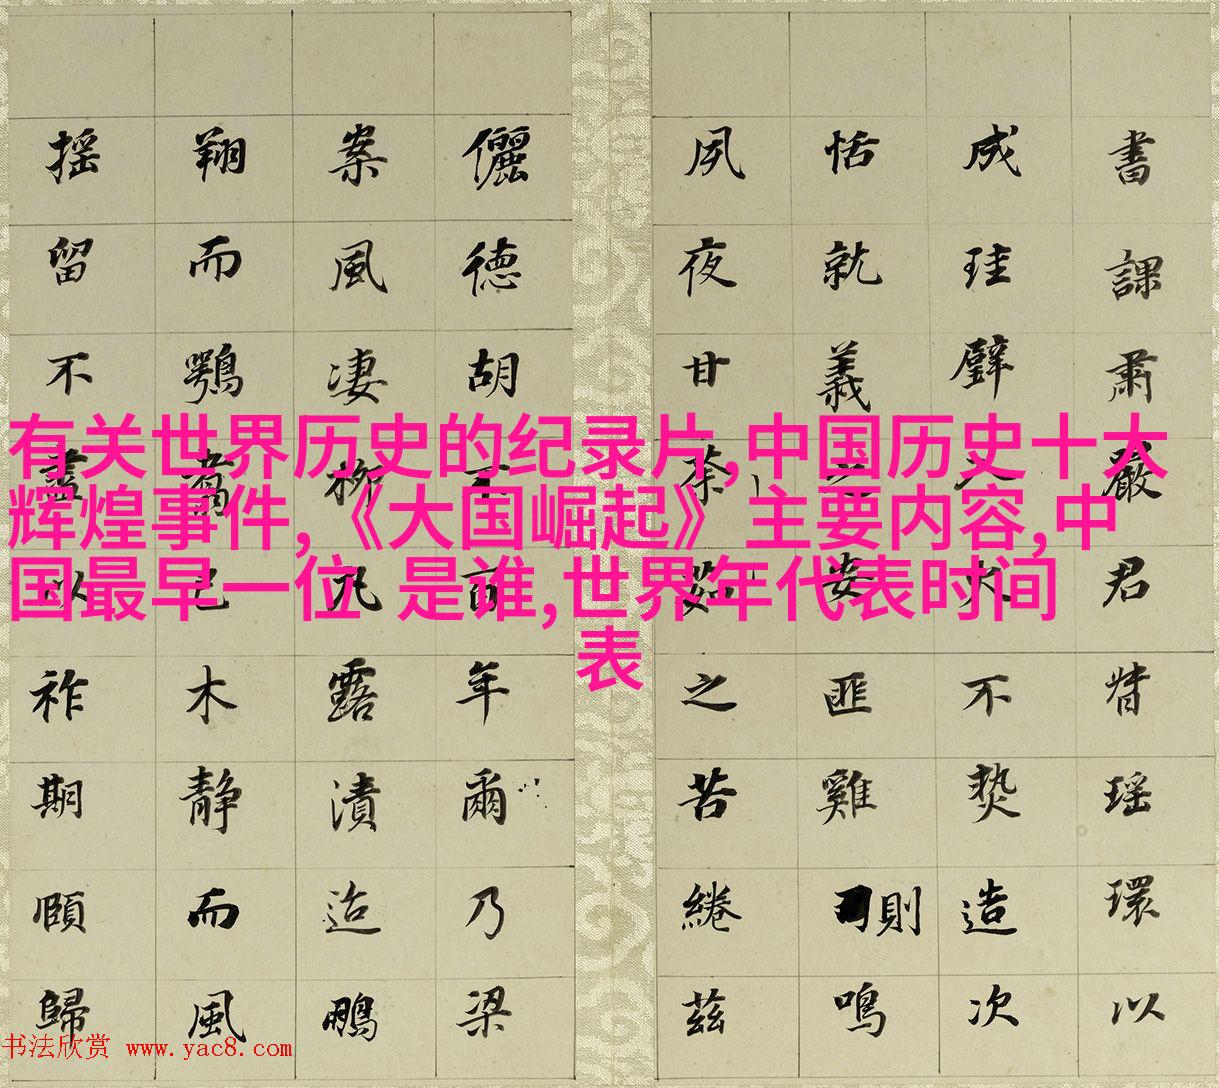 書課肅嚴君瑶環以
成珪璧火不造次
恬就義安匪雞則鳴
夙夜甘荼茹之苦綣茲
儷德胡不百年爾乃梁
案風淒柳几露漬迨鵬
翔而鶚翥已木靜而風
摇留不盡以祚期頤歸
有关世界历史的纪录片,中国历史十大
辉煌事件,《大国崛起》主要内容,中
国最早一位 是谁,世界年代表时间
表
书法欣赏 www.yac8.com